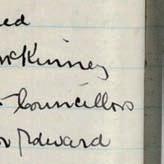 ed
McKinney
Councillors
or Edward